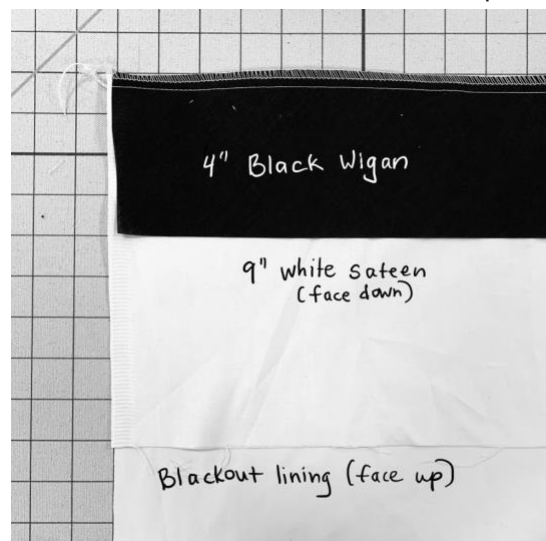 4" Black Wigan
9" white sateen
(face down)
Blackout lining (face up)